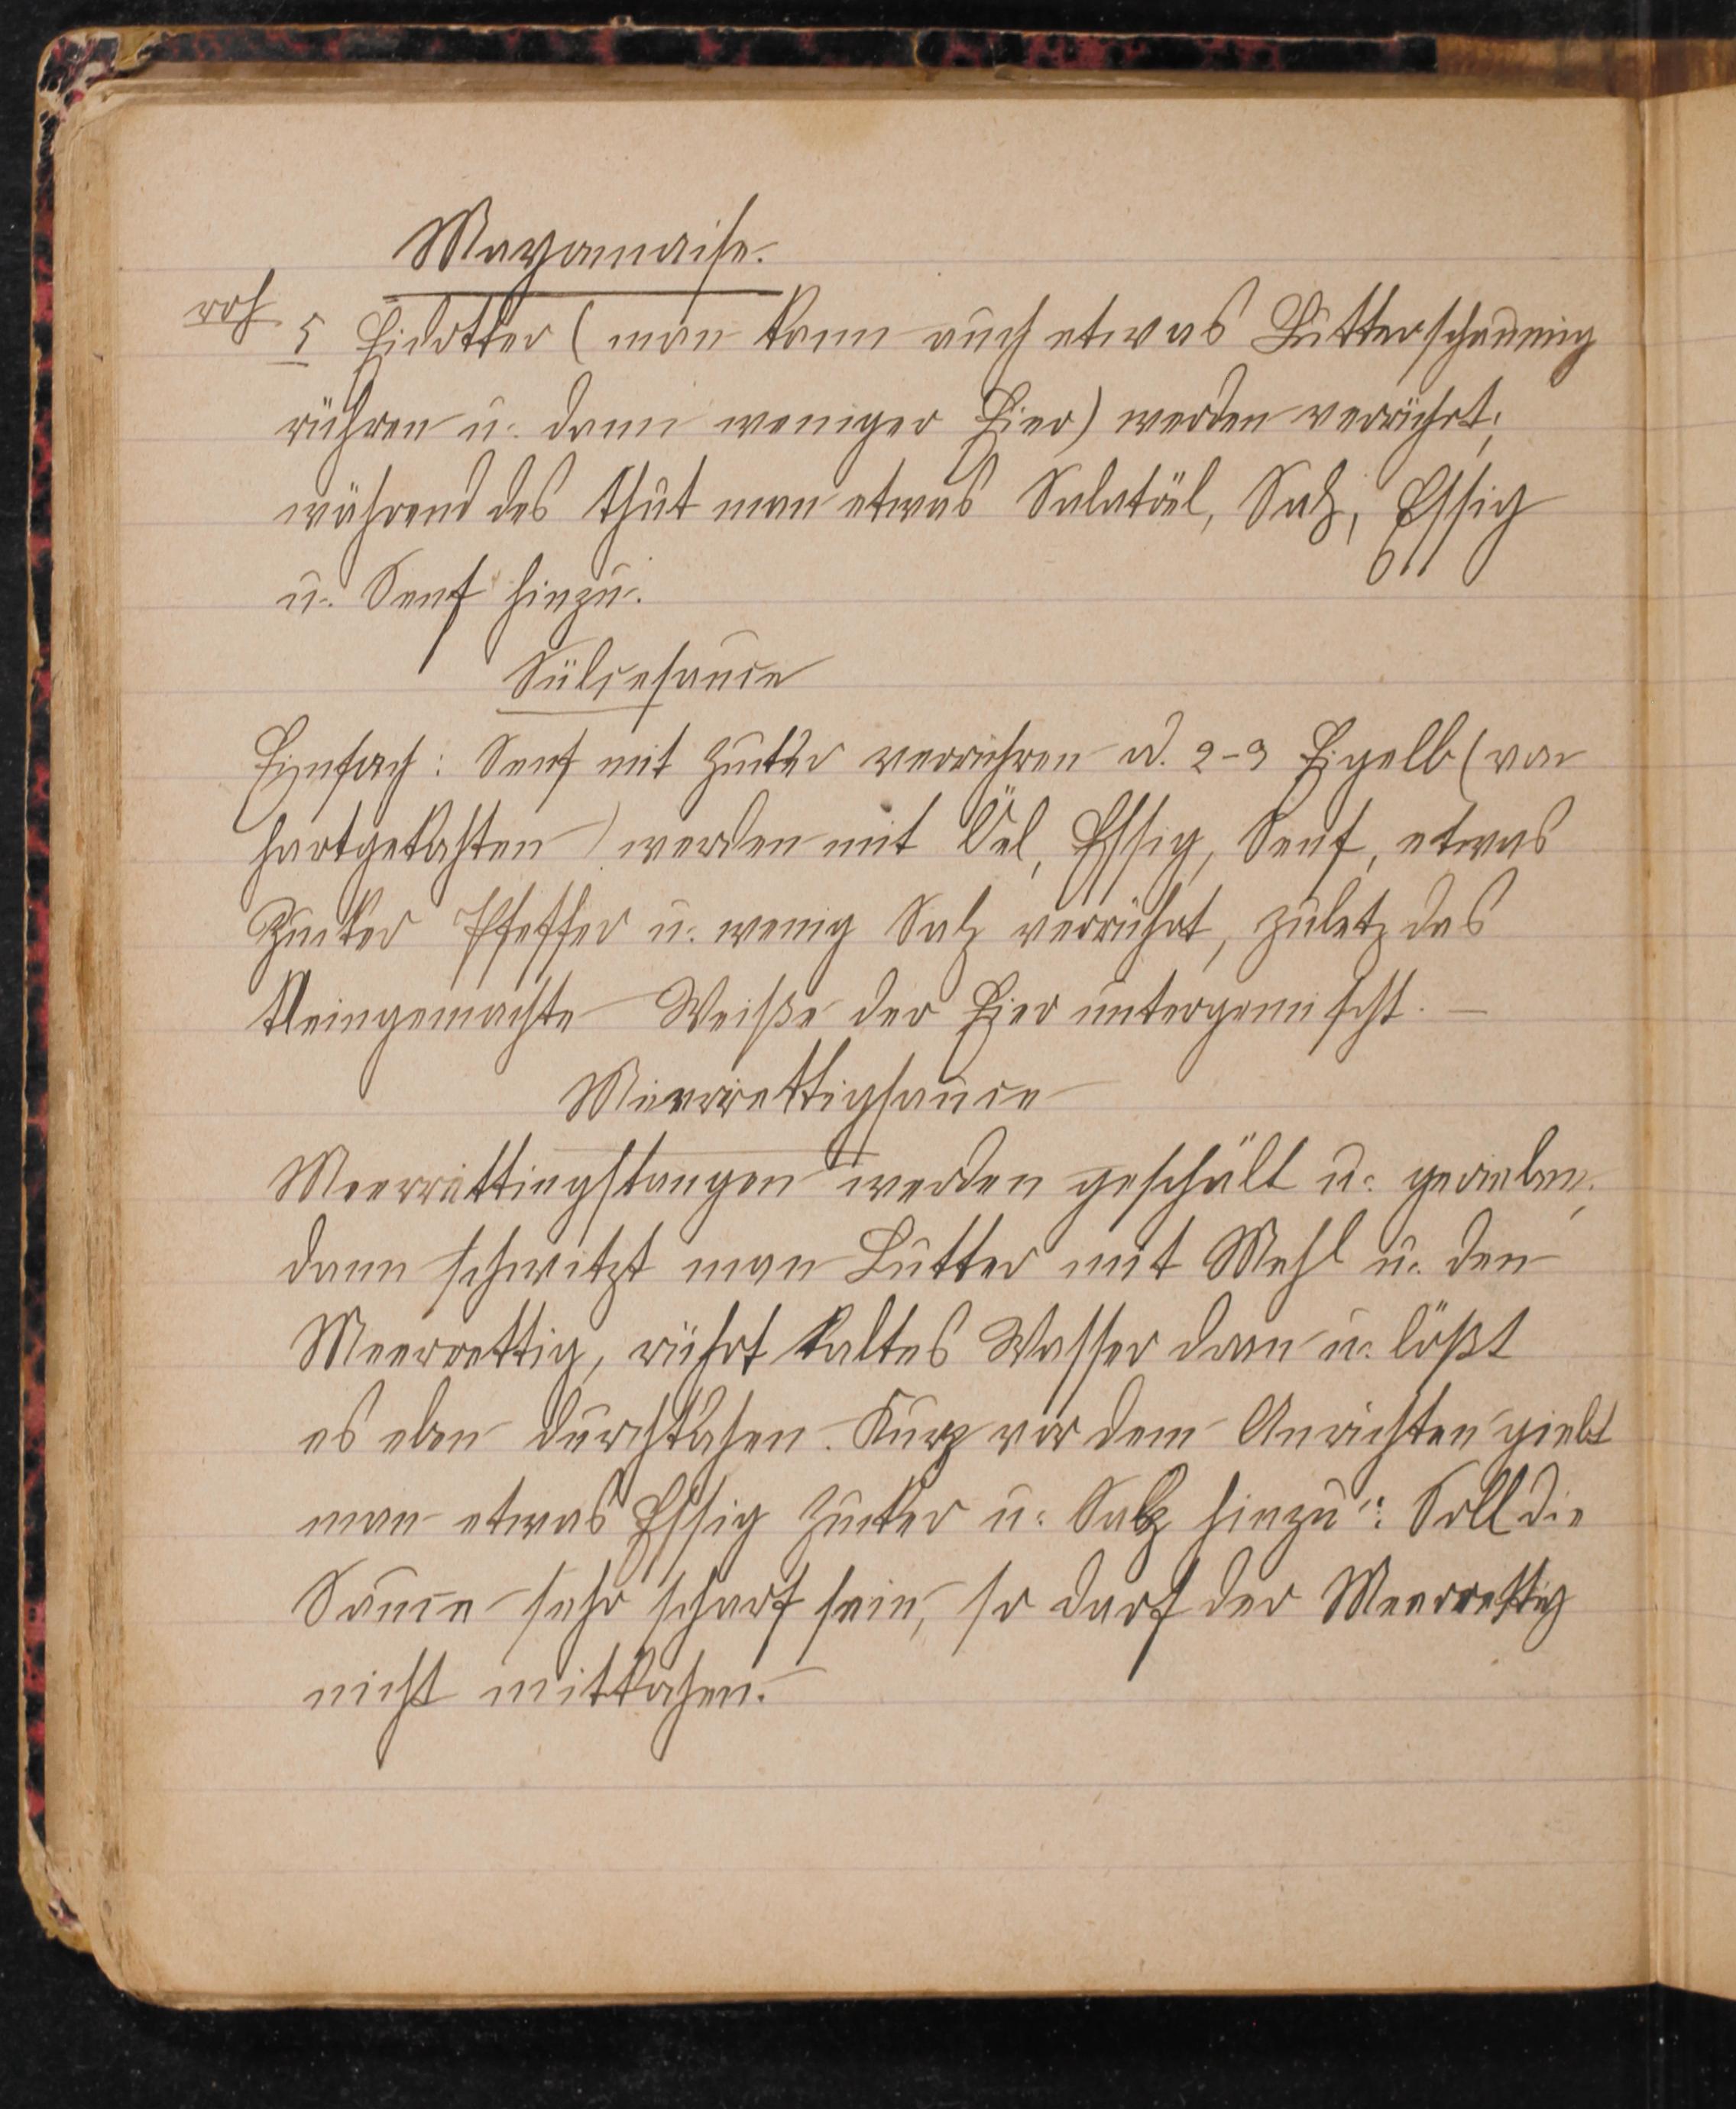 Mayonnaise.
roh 5 Eidotter (man kann auch etwas Butter schaumig
rühren u. dann weniger Eier) werden verrührt;
während des thut man etwas Salatöel, Salz, Essig
u. Senf hinzu.
Sülcesauce
Einfach: Senf mit Zucker verrühren od. 2-3 Eigelb (von
hartgekochten) werden mit Öel, Essig, Senf, etwas
Zucker Pfeffer u. wenig Salz verrührt, zuletz das
kleingemachte Weiße der Eier untergemischt. —
Meerrettigsauce
Meerrettingstangen werden geschält u. gerieben,
dann schwitzt man Butter mit Mehl u. den
Meerrettig, rührt kaltes Wasser dran u. läßt
es eben durchkochen. Kurz vor dem Anrichten giebt
man etwas Essig Zucker u. Salz hinzu. Soll die
Sauce sehr scharf sein, so darf der Meerrettig
nicht mitkochen.